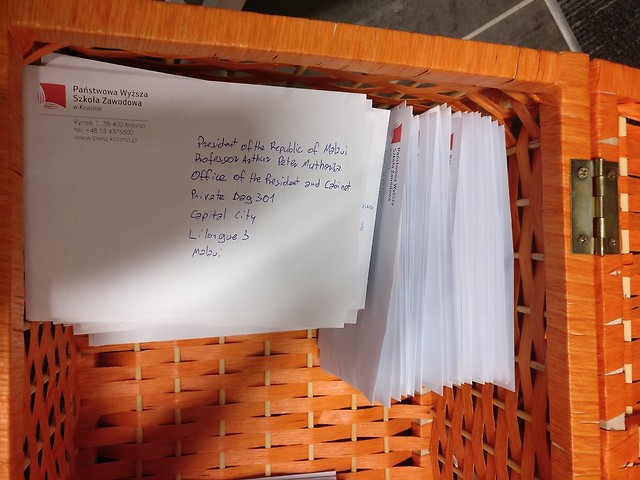 Państwowa Wyższa
Szkoła Zawodowa
w Krośnie
Rynek 1, 38-400 Krosno
tel. +48 13 4375500
www.pwsz.krosno.pl
President of the Republic of Malawi
Professor Arthur Peter Mutharika
Office of the President and Cabinet
Private Bag 301
Capital City
Lilongwe 3
Malawi
Państwowa Wyższa
Szkoła Zawodowa